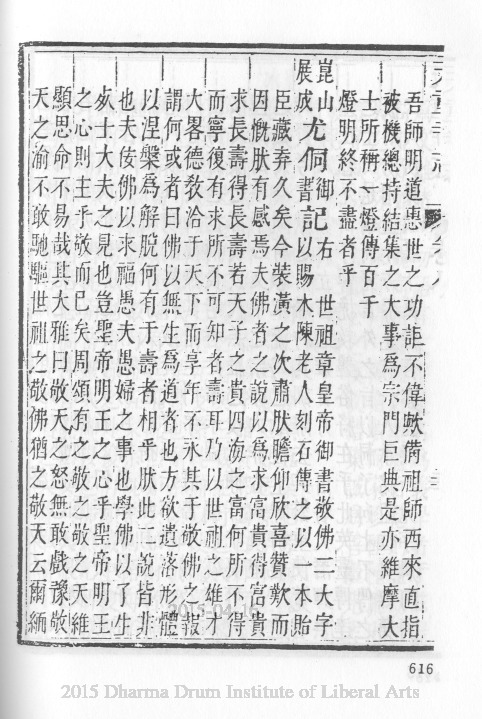 吾師明道惠世之功詎不偉歟僃祖師西來直指
被機總持結集之大事爲宗門巨典是亦維摩大
士所稱一燈傳百千
燈明終不盡者乎
崑山尤侗御書記右世祖章皇帝御書敬佛二大字
展成以賜木陳老人刻石傳之以一本貽
臣藏弆久矣今裝潢之次肅肰瞻仰欣喜贊歎而
因慨肰有感焉夫佛者之說以爲求富貴得富貴
求長壽得長壽若天子之貴四海之富何所不得
而寧復有求所不可知者壽耳乃以世祖之雄才
大畧德敎洽于天下而享年不永其于敬佛之報
謂何或者曰佛以無生爲道者也方欲遺落形體
以涅槃爲解脫何有于壽者相乎肰此二說皆非
也夫佞佛以求福愚夫愚婦之事也學佛以了生
死士大夫之見也豈聖帝明王之心乎聖帝明王
之心則主乎敬而已矣周頌有之敬之敬之天維
顯思命不易哉其大雅曰敬天之怒無敢戲豫敬
天之渝不敢馳驅世祖之敬佛猶之敬天云爾緬
616
2015.04.10
2015 Dharma Drum Institute of Liberal Arts